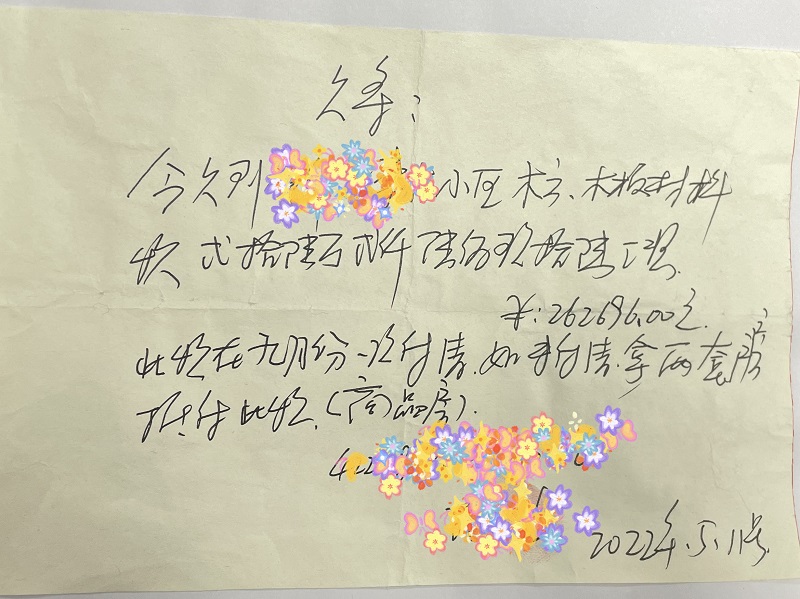 欠条：
今欠到 小区木方、木板材料
款 弍拾陆万弍仟陆佰玖拾陆元
￥：262696.00元.
此款在九月份一次付清.如未付清.拿两套房
抵付此款.（商品房）.
2022年.5.11号.